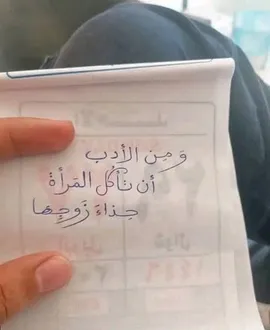 وَمِن الأدب
أن تأكُل المَرأة
حِذاءَ زَوجِها